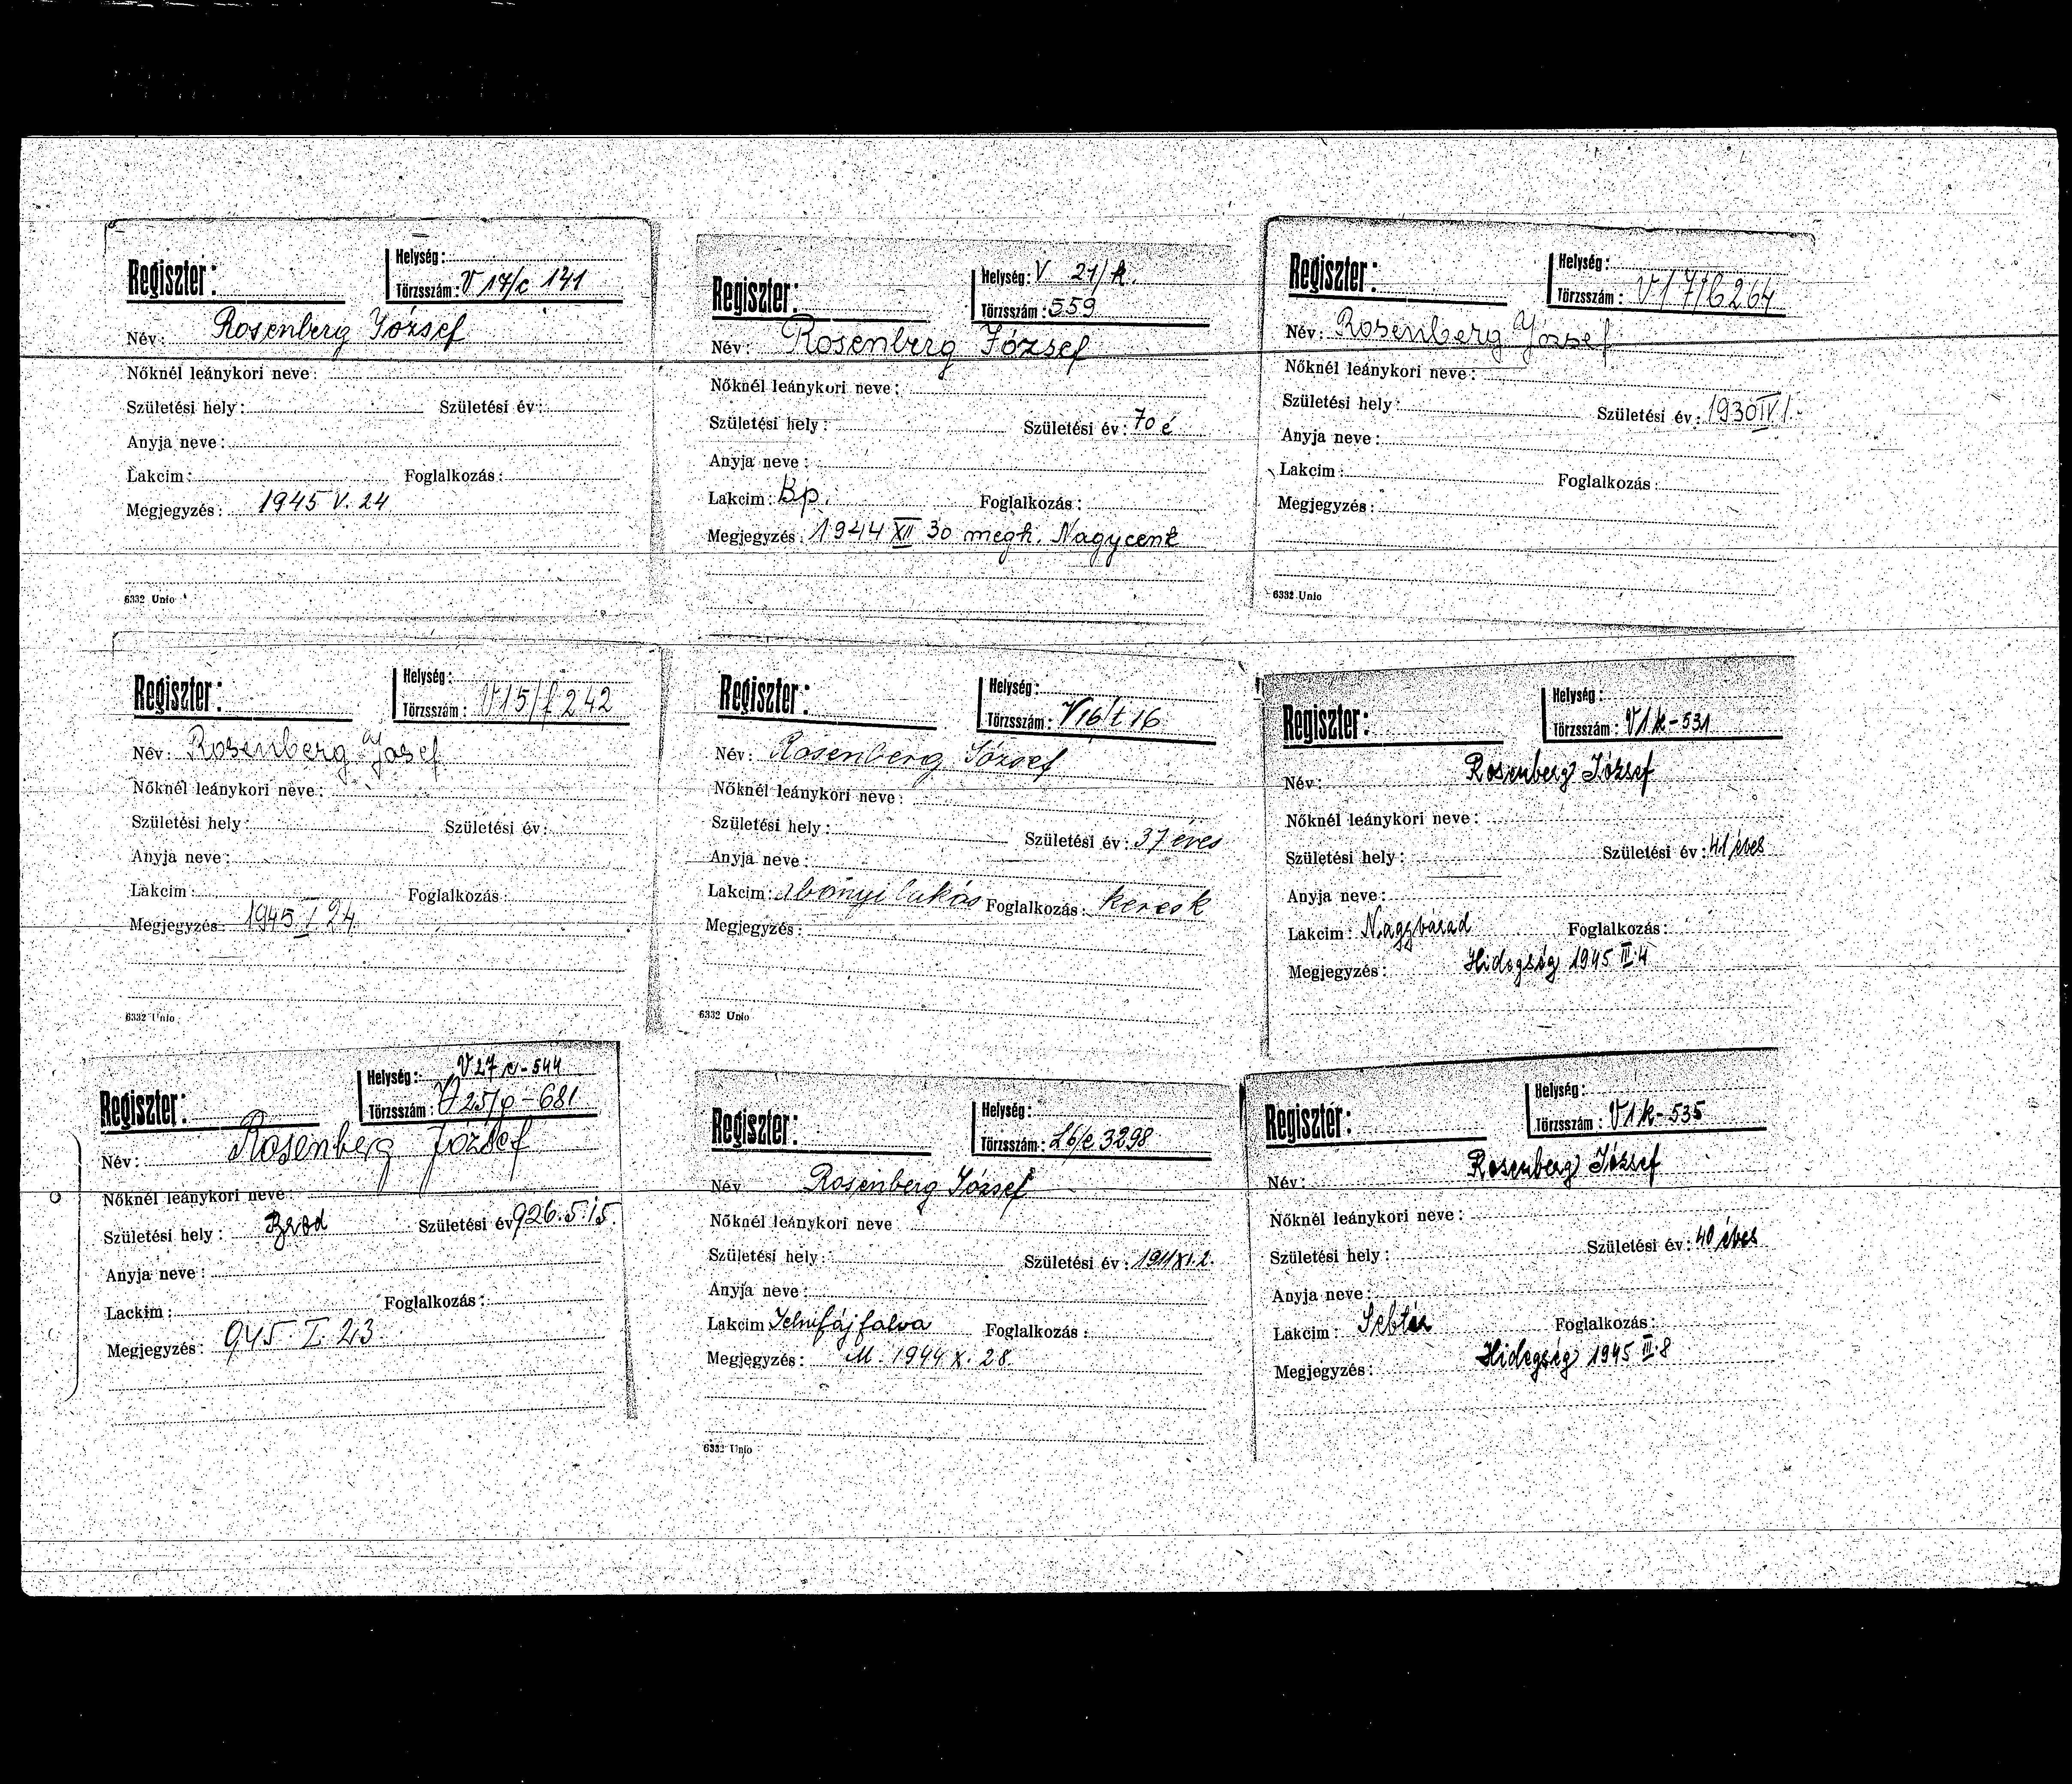 Regiszter:
Helység:
Törzsszám: V 17/c 141
Név: Rosenberg József
Nőknél leánykori neve:
Születési hely: Születési év:
Anyja neve:
Lakcim: Foglalkozás:
Megjegyzés: 1945 V. 24
6332 Unio
Regiszter:
Helység: V 21/k.
Törzsszám: 559
Név: Rosenberg József
Nőknél leánykori neve:
Születési hely: Születési év: 70 é
Anyja neve:
Lakcim: Bp. Foglalkozás:
Megjegyzés: 1944 XII 30 megh. Nagycenk
Regiszter:
Helység:
Törzsszám: V17/b264
Név: Rosenberg József
Nőknél leánykori neve:
Születési hely: Születési év: 1930 IV 1.
Anyja neve:
Lakcim: Foglalkozás:
Megjegyzés:
6332 Unio
Regiszter:
Helység:
Törzsszám: V15/f 242
Név: Rosenberg Josef
Nőknél leánykori neve:
Születési hely: Születési év:
Anyja neve:
Lakcim: Foglalkozás:
Megjegyzés: 1945 I 24
6332 Unio
Regiszter:
Helység:
Törzsszám: V16/t 16
Név: Rosenberg József
Nőknél leánykori neve:
Születési hely: Születési év: 37 éves
Anyja neve:
Lakcim: Foglalkozás: keresk
Megjegyzés:
6332 Unio
Regiszter:
Helység:
Törzsszám: V1k-531
Név: Rosenberg József
Nőknél leánykori neve:
Születési hely: Születési év: 41 éves
Anyja neve:
Lakcim: Nagyvárad Foglalkozás:
Megjegyzés: Hidegség 1945 III.4
Regiszter:
Helység: V27 -544
Törzsszám: V 25/ -681
Név: Rosenberg József
Nőknél leánykori neve:
Születési hely: Brod Születési év 926.5.15.
Anyja neve:
Lackim: Foglalkozás:
Megjegyzés: 945. I. 23.
Regiszter:
Helység:
Törzsszám: L6/e 3298
Név Rosenberg József
Nőknél leánykori neve
Születési hely: Születési év: 1911 XI.2.
Anyja neve:
Lakcim Foglalkozás:
Megjegyzés: M. 1944 X. 28.
Regiszter:
Helység:
Törzsszám: V1k-535
Név: Rosenberg József
Nőknél leánykori neve:
Születési hely: Születési év: 40 éves
Anyja neve:
Lakcim: Foglalkozás:
Megjegyzés: Hidegség 1945 III.8
6332 Unio